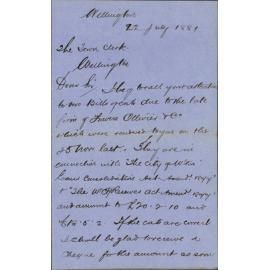 Wellington
22 July 1881
The Town Clerk
Wellington
Dear Sir I beg to call your attention
to two Bills of costs due to the late
firm of Travers Ollivier & Co
which were rendered to you on the
25 last. They are in
connection with "The City of W'ton
Loans Consolidation Act Amendt 1877"
& "The W Reserves Act Amendt 1877"
and amount to £20.2.10 and
£12.5.2. If they are correct
I shall be glad to receive a
cheque for the amount as soon